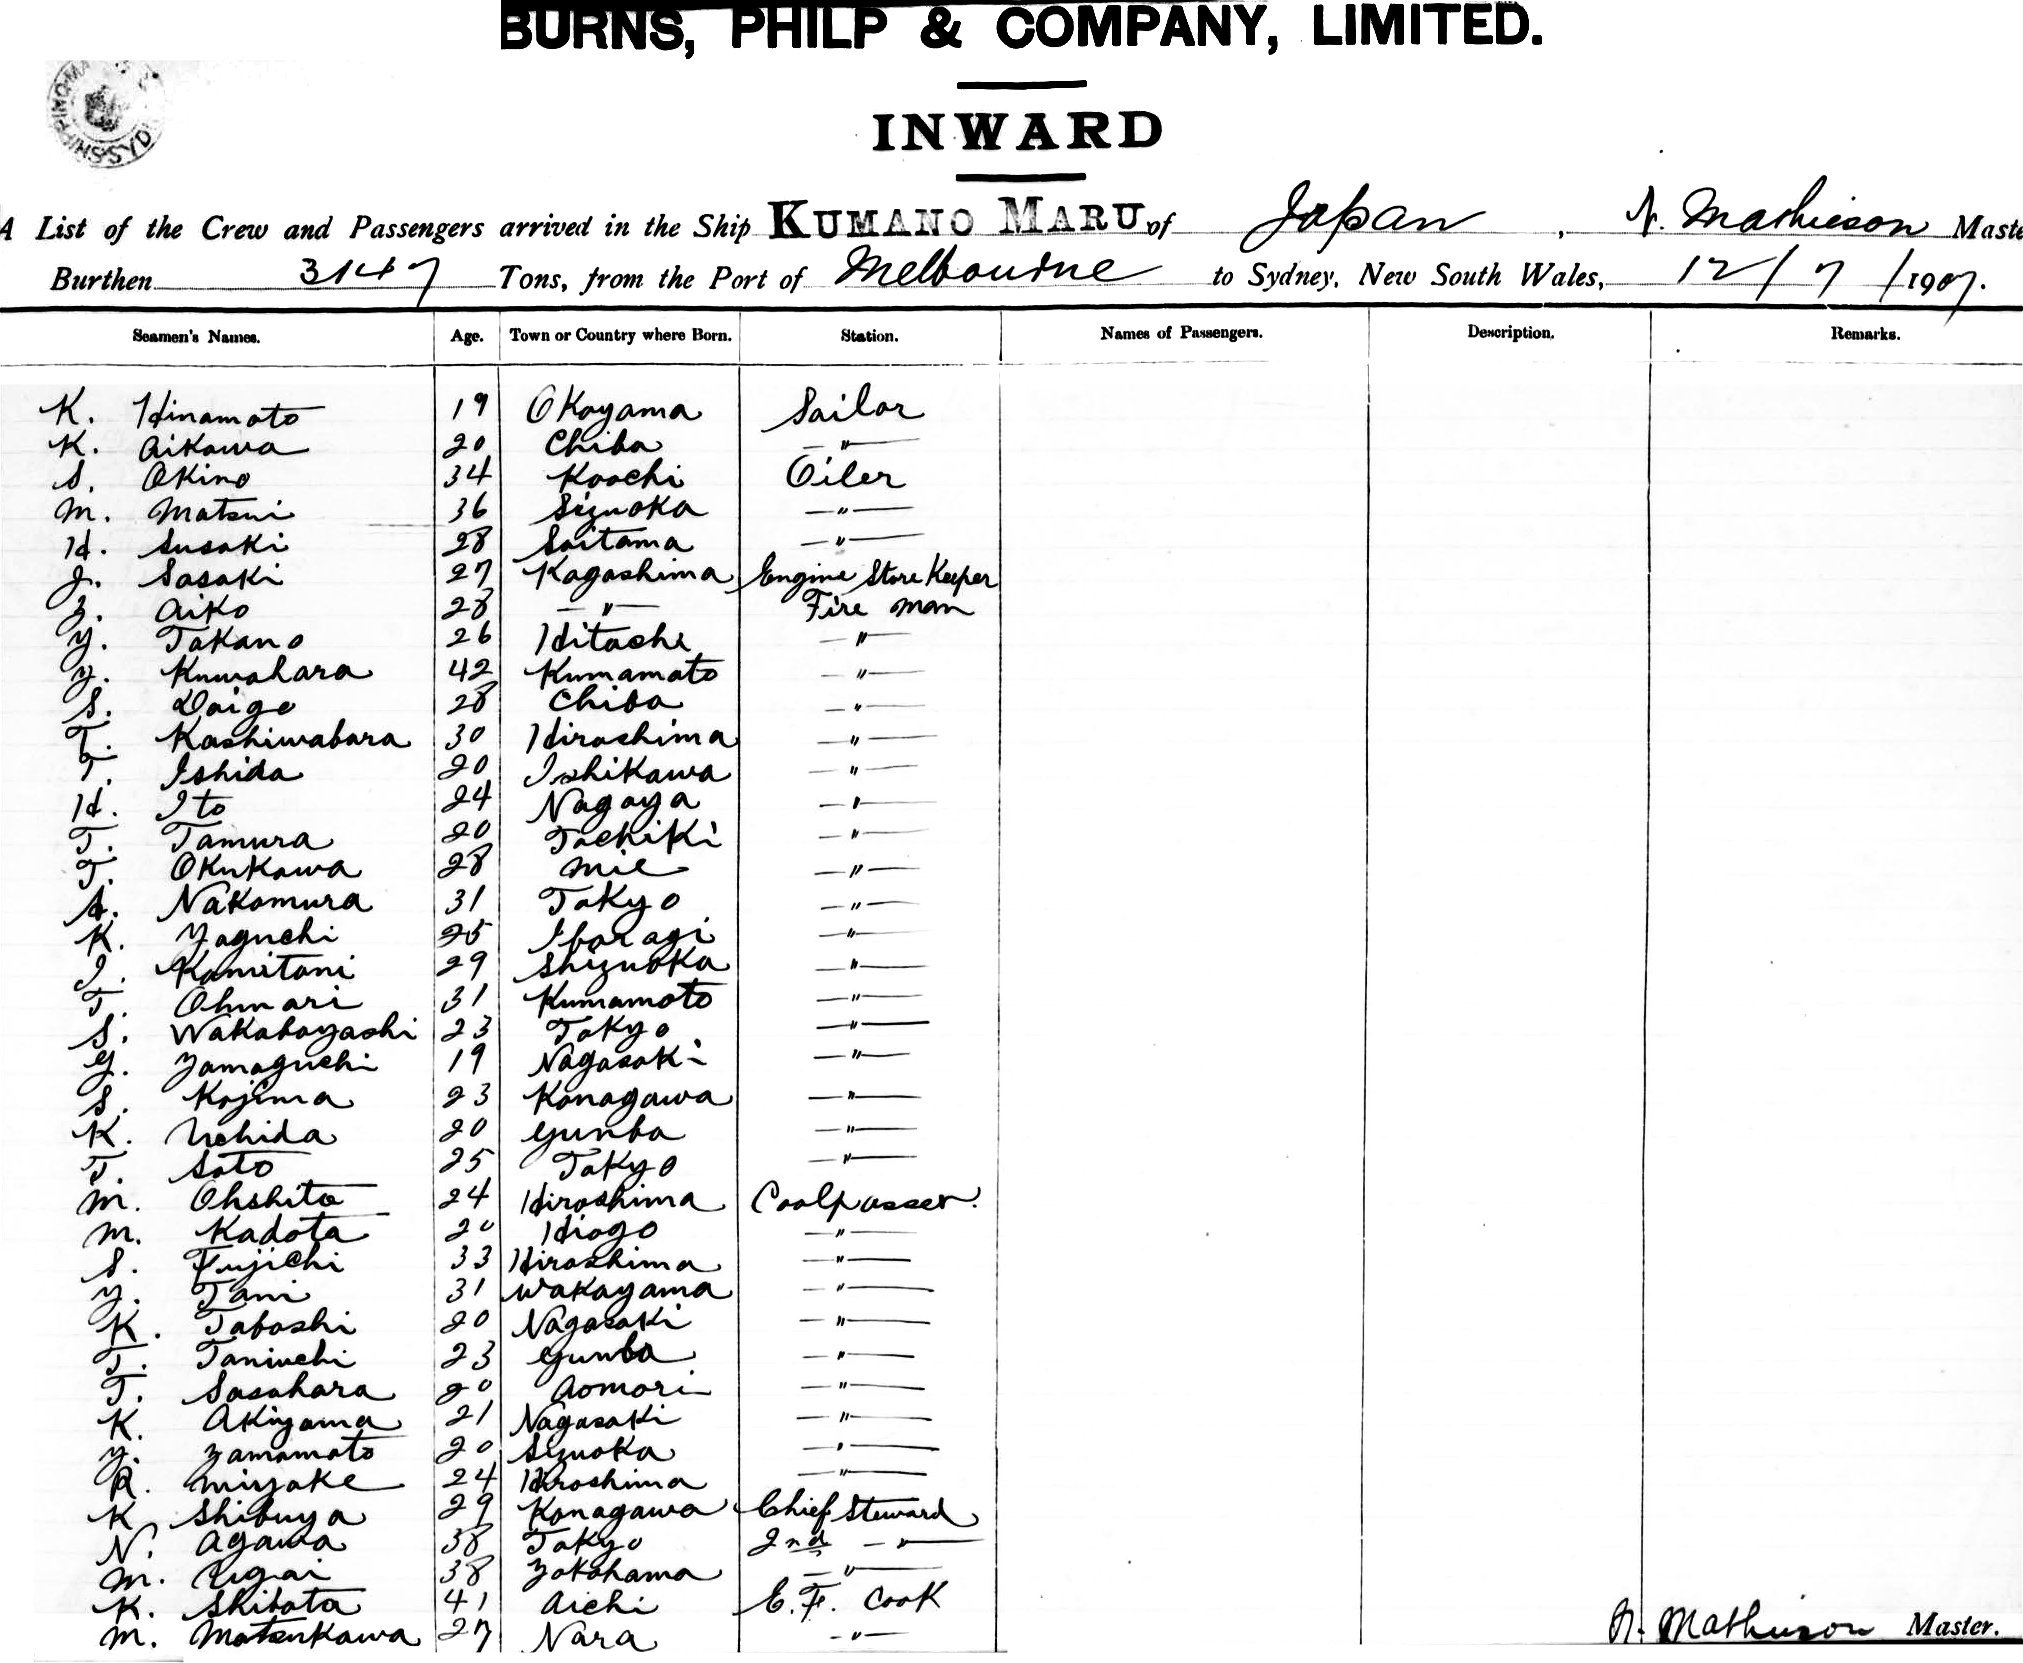 BURNS, PHILP & COMPANY, LIMITED.
INWARD
A List of the Crew and Passengers arrived in the Ship KUMANO MARU of Japan, N. Mathieson Maste
Burthen 3147 Tons, from the Port of Melbourne to Sydney, New South Wales, 12/7/1907.
Seamen's Names. Age. Town or Country where Born. Station. Names of Passengers. Description. Remarks.
K. Hinamoto 19 Okayama Sailor
K. Aikawa 20 Chiba — " —
S. Okino 34 Koochi Oiler
M. Matsui 36 Sizuoka — " —
H. Susaki 28 Saitama — " —
J. Sasaki 27 Kagoshima Engine Store Keeper
Z. Aiko 28 — " — Fire man
Y. Takano 26 Hitachi — " —
Y. Kuwahara 42 Kumamoto — " —
S. Daigo 28 Chiba — " —
T. Kashiwabara 30 Hiroshima — " —
T. Ishida 20 Ishikawa — " —
H. Ito 24 Nagoya — " —
T. Tamura 20 Tochiki — " —
T. Okukawa 28 Mie — " —
Nakamura 31 Tokyo — " —
K. Yaguchi 25 Ibaragi — " —
I. Kamitani 29 Shizuoka — " —
T. Ohmori 31 Kumamoto — " —
S. Wakabayashi 23 Tokyo — " —
G. Yamaguchi 19 Nagasaki — " —
S. Kojima 23 Kanagawa — " —
K. Uchida 20 Gunba — " —
T. Sato 25 Tokyo — " —
M. Ohshita 24 Hiroshima Coalpasser.
M. Kadota 20 Hiogo — " —
S. Fujichi 33 Hiroshima — " —
Y. Tani 31 Wakayama — " —
K. Tabashi 20 Nagasaki — " —
T. Taniuchi 23 Gunba — " —
T. Sasahara 20 Aomori — " —
K. Akiyama 21 Nagasaki — " —
Y. Yamamoto 20 Sizuoka — " —
R. Miyake 24 Hiroshima — " —
K Shibuya 29 Kanagawa Chief Steward
N. Agawa 38 Tokyo 2nd — " —
M. Ugai 38 Yokohama — " —
K. Shibata 41 Aichi E. F. Cook
M. Matsukawa 27 Nara — " —
N. Mathieson Master.